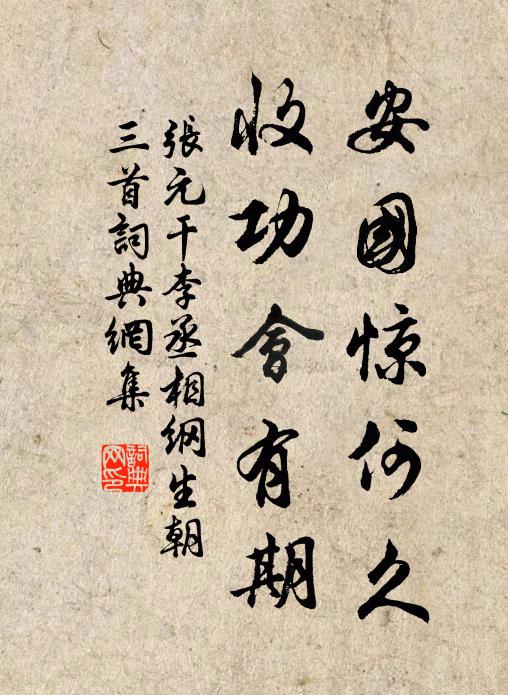 安國惊何久
收功會有期
張元干李丞相纲生朝
三首詞典網集
詞典
网印